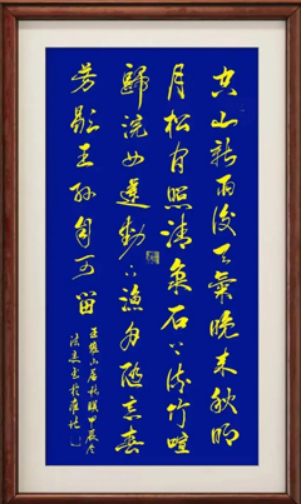 空山新雨後天氣晚来秋明
月松间照清泉石上流竹喧
歸浣女蓮動下漁舟随意春
芳歇王孫自可留
王維山居秋暝甲辰冬
書於